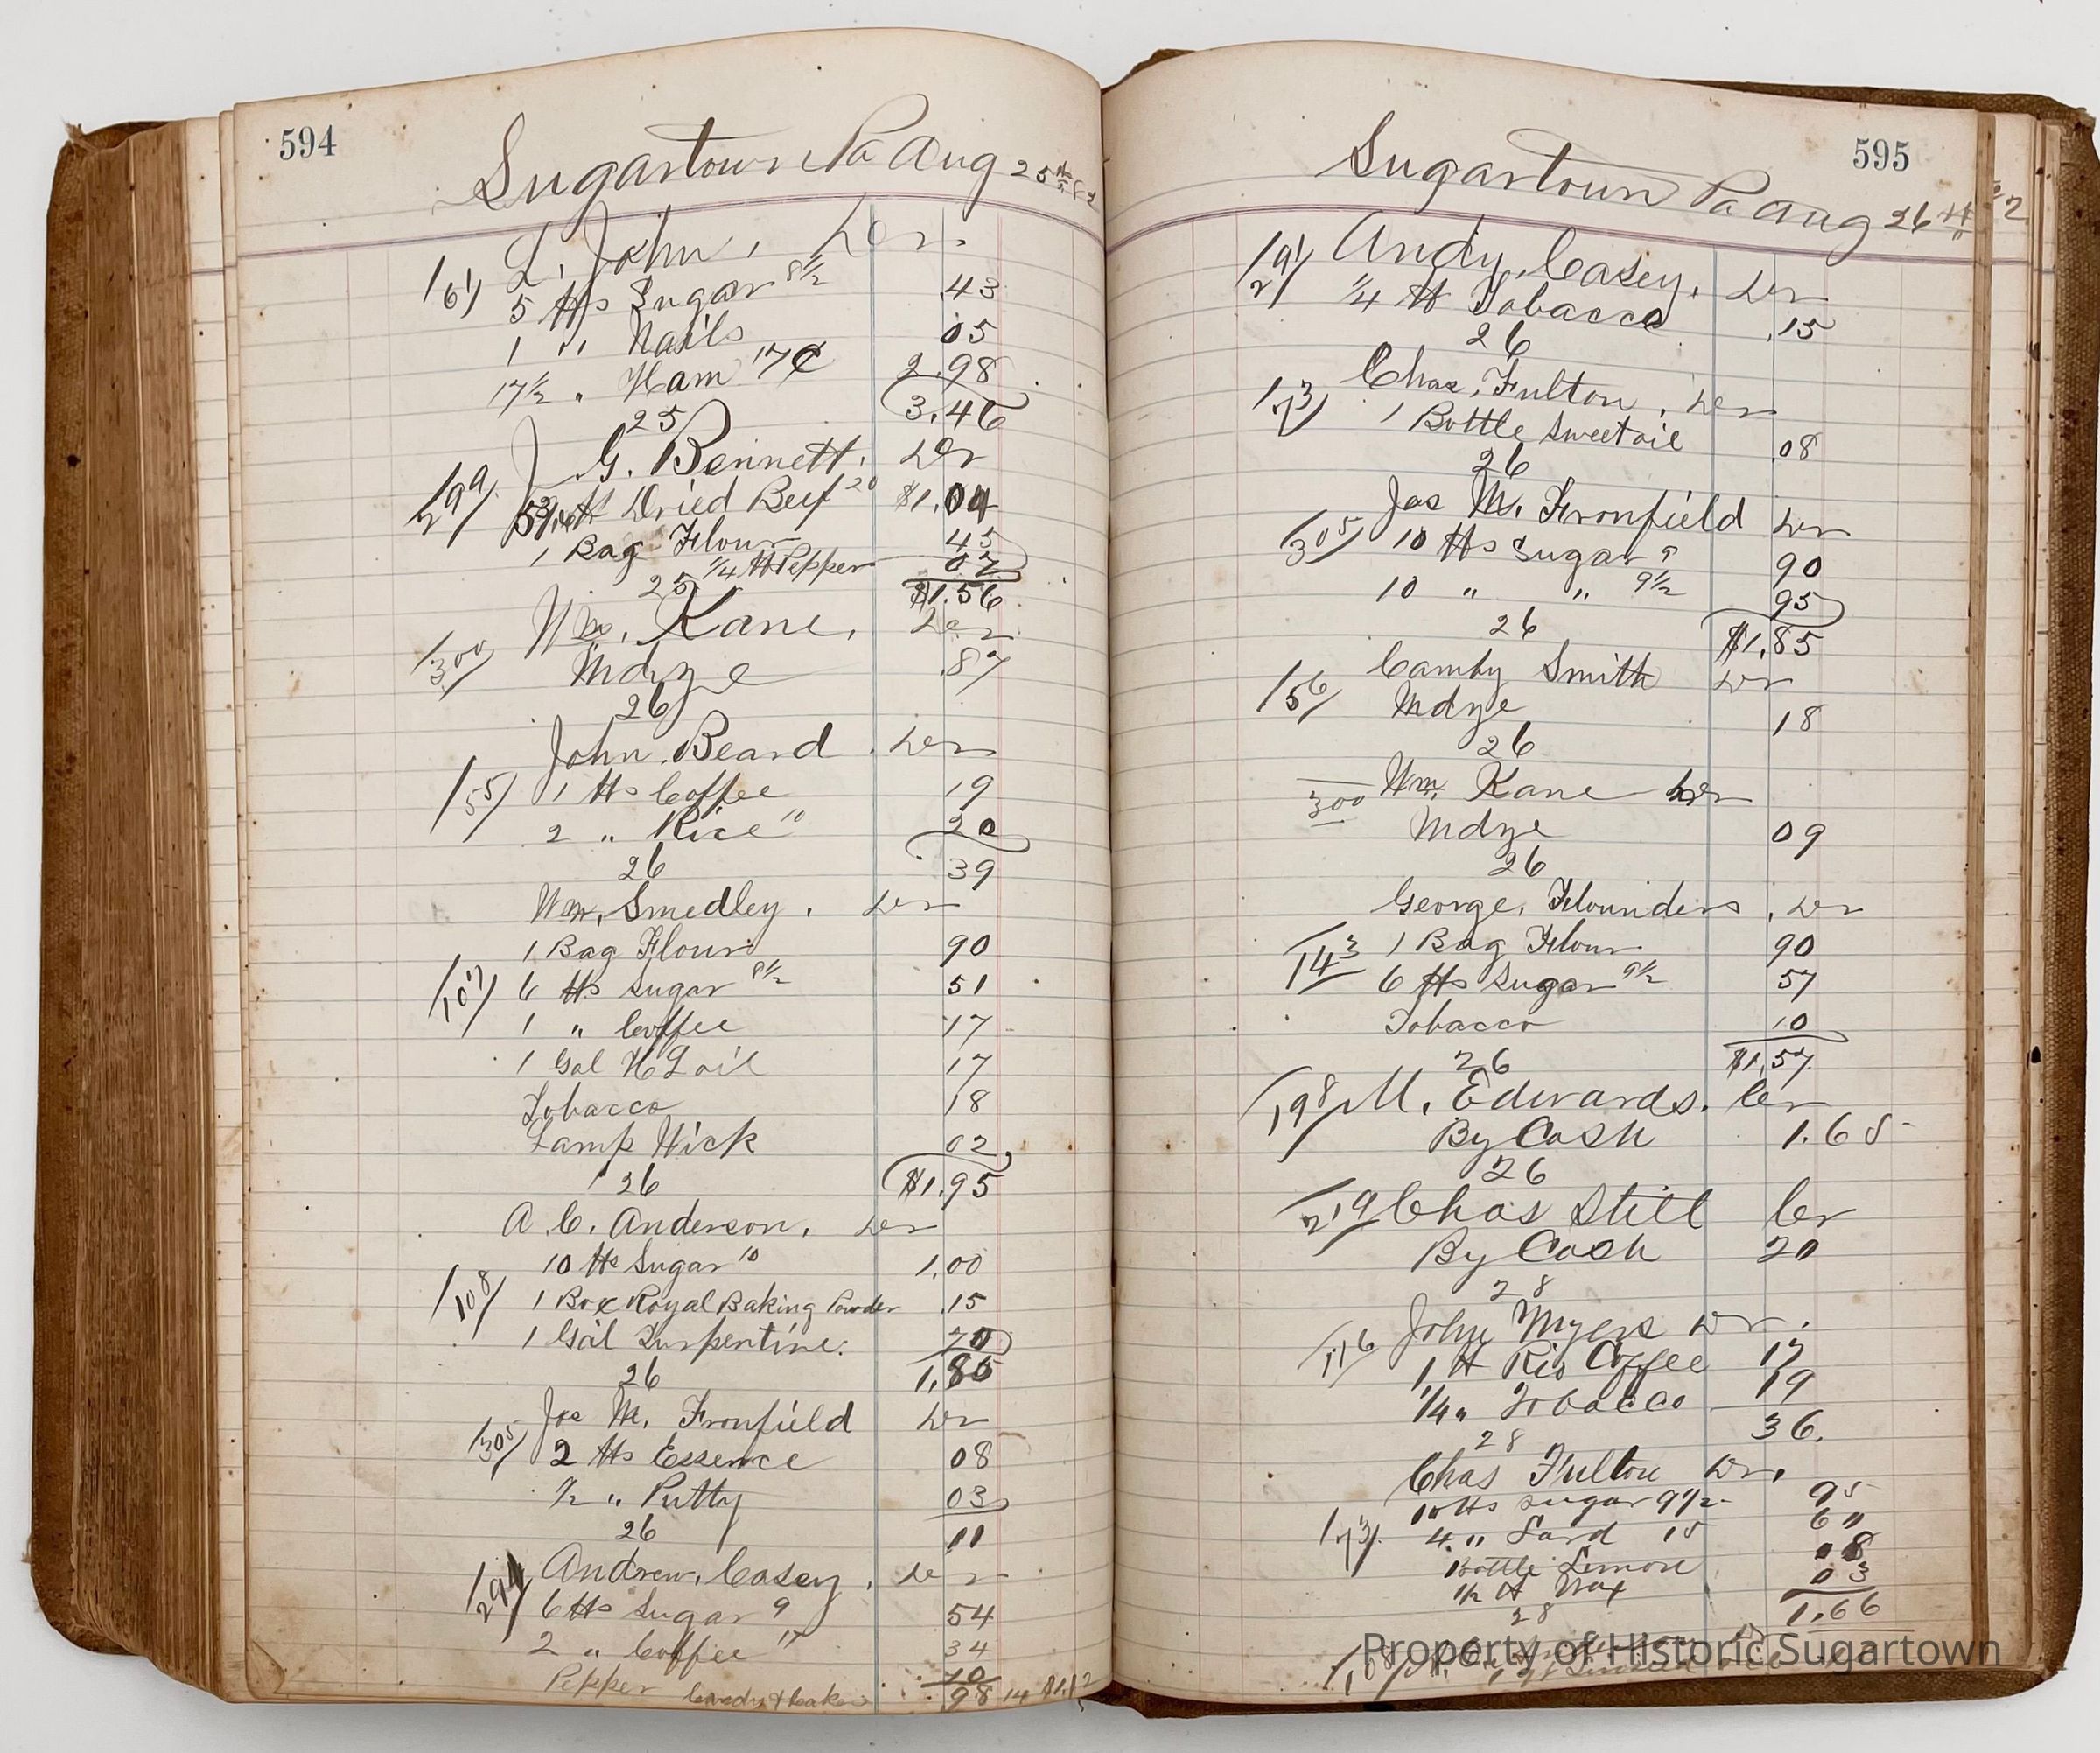 594
Sugartown Pa Aug 25th 82
L. John, Dr
161 5 lbs Sugar 8½ .43
1 " Nails 05
17½ " Ham 17¢ 2.98
3.46
25
J. G. Bennett. Dr
299 5 3/16 lb Dried Beef 20 $1.04
1 Bag Flour 45
¼ lb Pepper 07
25 $1.56
Wm. Kane, Dr
300 Mdze .87
26
John Beard. Dr
155 1 lbs Coffee 19
2 " Rice 10 20
26 39
Wm. Smedley. Dr
1 Bag Flour 90
107 6 lbs Sugar 8½ 51
1 " Coffee 17
1 Gal H L oil 17
Tobacco 18
Lamp Wick 02
26 $1.95
A. C. Anderson. Dr
10 lbs Sugar 10 1.00
108 1 Box Royal Baking Powder .15
1 Gal Turpentine. 70
26 1.85
Jos M. Fronfield Dr
305 2 lbs Essence 08
½ " Putty 03
26 11
294 Andrew. Casey. Dr
6 lbs Sugar 9 54
2 " Coffee 17 34
Pepper 10
Candy & Cakes 98 14 $1.12
595
Sugartown Pa Aug 26th 82
Andy. Casey. Dr
¼ lb Tobacco .15
26
173 Chas. Fulton. Dr
1 Bottle Sweet oil .08
26
Jos M. Fronfield Dr
305 10 lbs Sugar 9 90
10 " " 9½ 95
26 $1.85
Camby Smith Dr
156 Mdze 18
26
300 Wm. Kane Dr
Mdze 09
26
George. Flounders. Dr
143 1 Bag Flour 90
6 lbs Sugar 9½ 57
Tobacco 10
26 $1.57
198 M. Edwards. Cr
By Cash 1.65
26
219 Chas Still Cr
By Cash 20
28
John Myers Dr.
116 1 lb Rio Coffee 17
¼ " Tobacco 19
28 36.
Chas Fulton Dr.
10 lbs Sugar 9½ 95
173 4 " Lard 15 60
Bottle Lemon .08
½ lb Wax 03
28 1.66
108
Property of Historic Sugartown